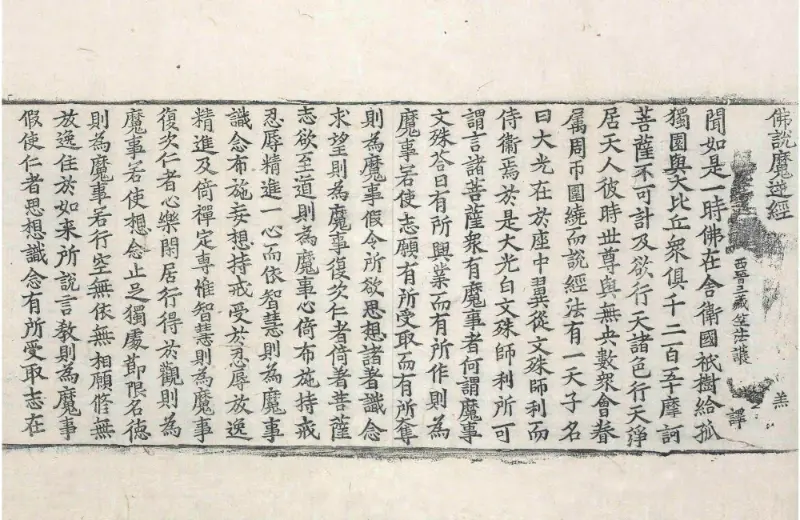 佛說魔逆經
羔
西晉三藏竺法護
譯
聞如是一時佛在舍衛國祇樹給孤
獨園與大比丘衆俱千二百五十摩訶
菩薩不可計及欲行天諸色行天淨
居天人彼時世尊與無央數衆會眷
属周帀圍繞而說經法有一天子名
曰大光在於座中翼從文殊師利而
侍衛焉於是大光白文殊師利所可
謂言諸菩薩衆有魔事者何謂魔事
文殊荅曰有所興業而有所作則為
魔事若使志願有所受取而有所奪
則為魔事假令所欲思想諸著識念
求望則為魔事復次仁者倚著菩薩
志欲至道則為魔事心倚布施持戒
忍辱精進一心而依智慧則為魔事
識念布施妄想持戒受於忍辱放逸
精進及倚禪定專惟智慧則為魔事
復次仁者心樂閑居行得於觀則為
魔事若使想念止足獨處節限名德
則為魔事若行空無依無相願脩無
放逸住於如来所說言教則為魔事
假使仁者思想識念有所受取志在